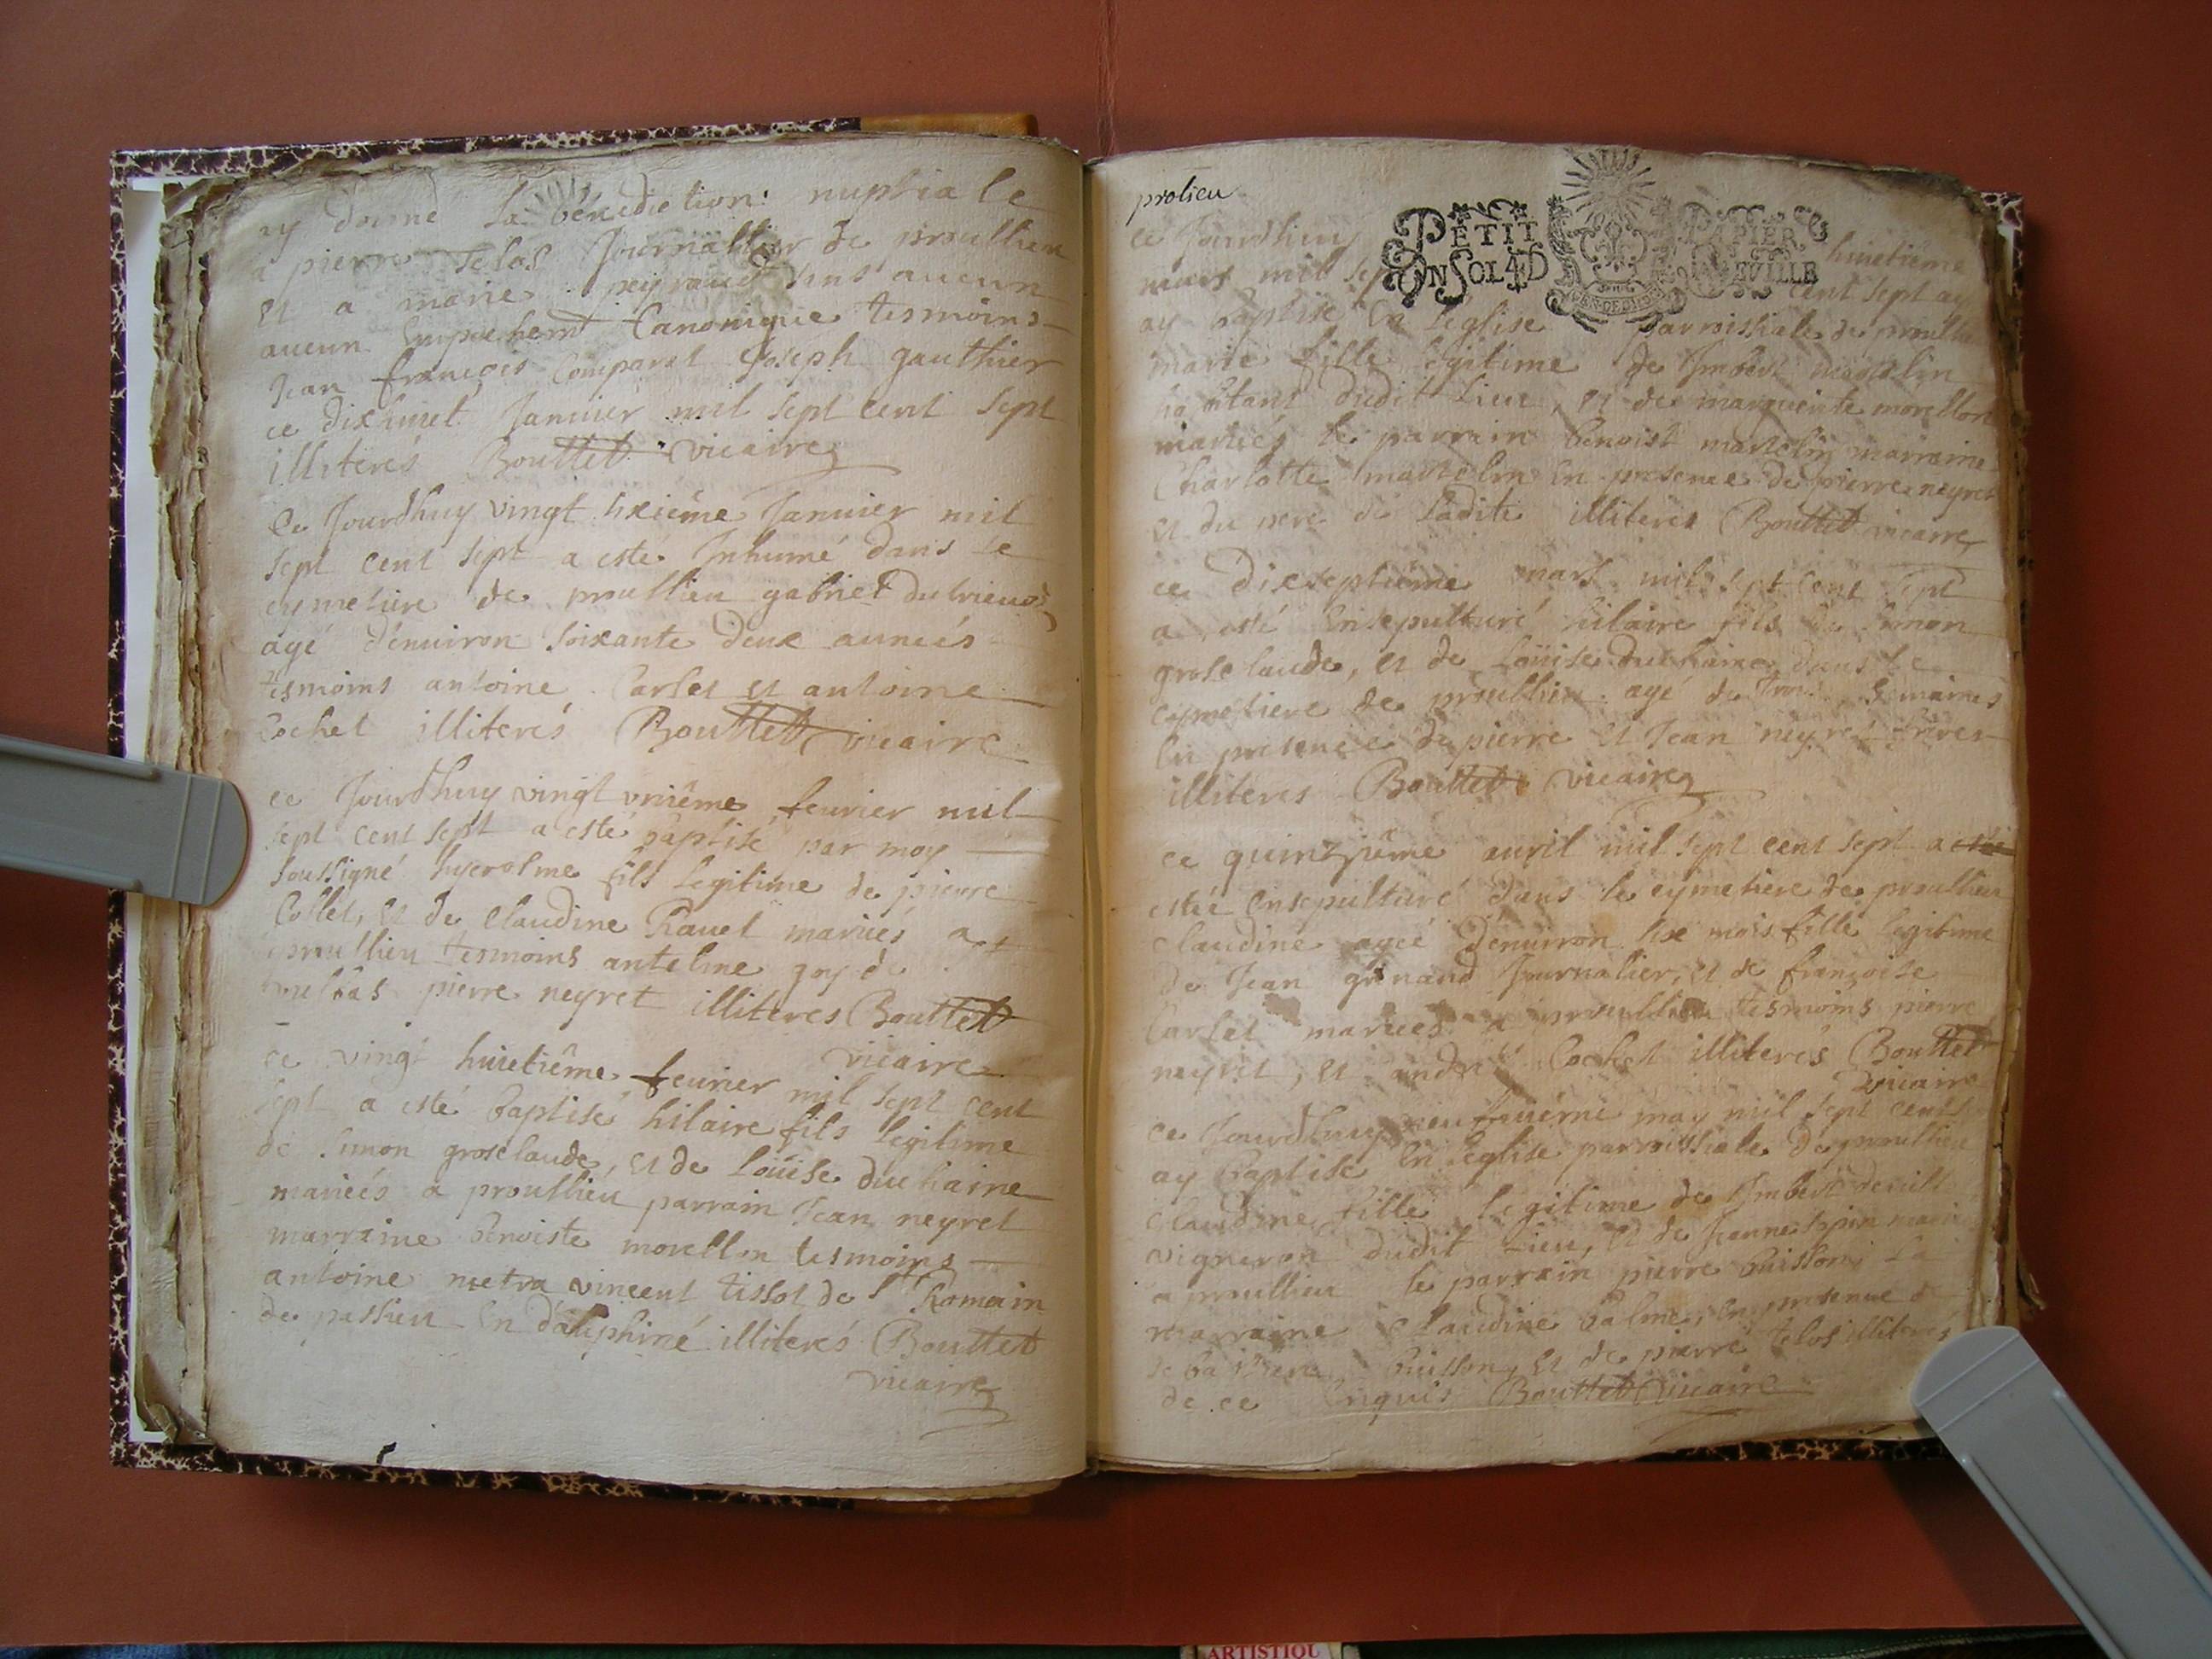 ay donné la bénédiction nuptiale
a pierre Telos Journallier de proullieu
et a marie peyraud sans aucun
aucun Empechemt Canonique tesmoins
Jean françois Comparat Joseph gauthier
ce dixhuict Janvier mil sept cent sept
illiterés Bouttet vicaire
Ce Jourdhuy vingt sixiéme Janvier mil
sept cent sept a esté Inhumé dans le
cymetiere de proullieu gabriel
agé d'enuiron soixante deux anneés
tesmoins antoine Carlet et antoine
Cochet illiterés Bouttet vicaire
ce Jourdhuy vingt vniême feurier mil
sept cent sept a esté baptisé par moy
soussigné hyerosme fils legitime de pierre
Collet, et de Claudine Rauet mariés a
proullieu tesmoins antelme goy de
pierre neyret illiteres Bouttet
vicaire
ce vingt huietiême feurier mil sept cent
sept a esté baptisé hilaire fils legitime
de simon grosclaude, et de Loüise duchaine
marieés a proullieu parrain Jean neyret
marraine benoiste morellon tesmoins
antoine metra vincent tissot de St Romain
de passieu En dauphiné illiterés Bouttet
vicaire
prolieu
PETIT PAPIER
UN SOL 4 D NEUILLE
ce Jourdhuy huietiême
mars mil sept cent sept ay
ay baptisé En l'église parroissiale de proullieu
marie fille legitime de Imbert martelin
habitant dudit Lieu, et de marguerite morellon
mariés le parrain benoist martelin marraine
Charlotte martelin En presence de pierre neyret
et du pere de Ladite illiteres Bouttet vicaire
ce dixseptiéme mars mil sept cent sept
a esté Ensepulturé hilaire fils de simon
grosclaude, et de Loüise duchaine dans le
cymetiere de proullieu agé de trois semaines
En presence de pierre et Jean neyret freres
illiteres Bouttet vicaire
ce quinziéme auril mil sept cent sept a esté
esteé ensepulturé dans le cymetiere de proullieu
claudine ageé d'enuiron six mois fille legitime
de Jean grinand Journalier, et de françoise
Carlet marieés a proullieu tesmoins pierre
neyret, et andré Cochet illiterés Bouttet
vicaire
ce Jourdhuy may mil sept cent
ay baptisé En l'église parroissiale de proullieu
Claudine fille legitime de Imbert
vigneron dudit Lieu, et de Jeanne
a proullieu le parrain pierre buisson La
marraine Claudine balme, En presence de
buisson, et de pierre telos illiterés
de ce Enquis Bouttet vicaire
ARTISTIQU